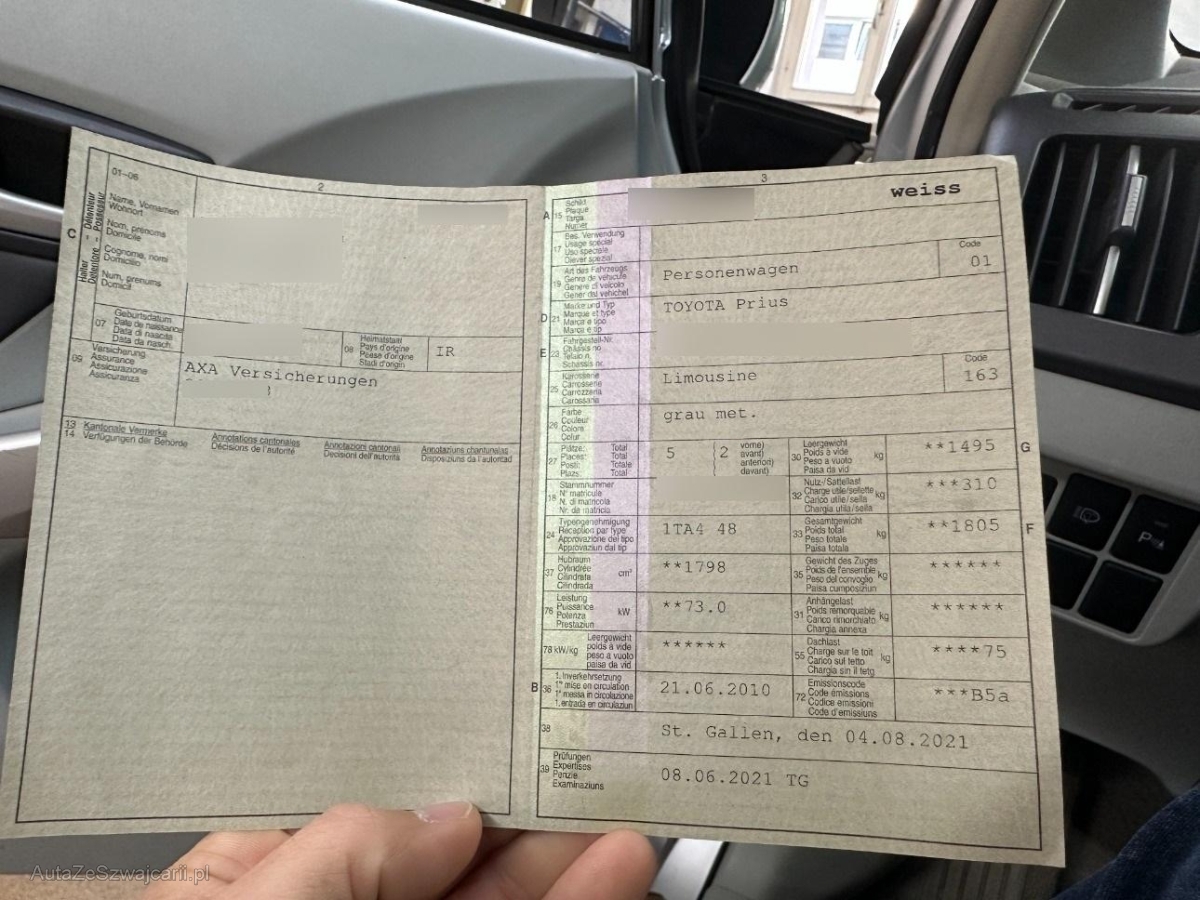 2
01-06
C
Halter Détenteur
Detentore Possessur
Name, Vornamen
Wohnort
Nom, prénoms
Domicile
Cognome, nomi
Domicilio
Num, prenums
Domicil
07
Geburtsdatum
Data de naissance
Data di nascita
Data da nasch.
08
Heimatstaat
Pays d'origine
Paese d'origine
Stadi d'origin
IR
09
Versicherung
Assurance
Assicurazione
Assicuranza
AXA Versicherungen
13 Kantonale Vermerke
14 Verfügungen der Behörde
Annotations cantonales
Décisions de l'autorité
Annotazioni cantonali
Decisioni dell'autorità
Annotaziuns chantunalas
Disposiziuns da l'autoritad
3
weiss
A 15
Schild
Plaque
Targa
Numer
17
Bes. Verwendung
Usage spécial
Uso speciale
Diever spezial
19
Art des Fahrzeugs
Genre de véhicule
Genere di veicolo
Gener dal vehichel
Personenwagen
Code
01
D 21
Marke und Typ
Marque et type
Marca e tipo
Marca e tip
TOYOTA Prius
E 23
Fahrgestell-Nr.
Châssis no
Telaio n.
Schassis nr.
25
Karosserie
Carrosserie
Carrozzeria
Carossaria
Limousine
Code
163
26
Farbe
Couleur
Colore
Colur
grau met.
27
Plätze: Total
Places: Total
Posti: Totale
Plazs: Total
5
2
vorne)
avant)
anteriori)
davant)
30
Leergewicht
Poids à vide
Peso a vuoto
Paisa da vid
kg
**1495
G
18
Stammnummer
N° matricule
N. di matricola
Nr. da matricla
32
Nutz-/Sattellast
Charge utile/sellette
Carico utile/sella
Chargia utila/sella
kg
***310
24
Typengenehmigung
Réception par type
Approvazione del tipo
Approvaziun dal tip
1TA4 48
33
Gesamtgewicht
Poids total
Peso totale
Paisa totala
kg
**1805
F
37
Hubraum
Cylindrée
Cilindrata
Cilindrada
cm³
**1798
35
Gewicht des Zuges
Poids de l'ensemble
Peso del convoglio
Paisa cumposiziun
kg
******
76
Leistung
Puissance
Potenza
Prestaziun
kW
**73.0
31
Anhängelast
Poids remorquable
Carico rimorchiato
Chargia annexa
kg
******
78 kW/kg
Leergewicht
poids à vide
peso a vuoto
paisa da vid
******
55
Dachlast
Charge sur le toit
Carico sul tetto
Chargia sin il tetg
kg
****75
B 36
1. Inverkehrsetzung
1re mise en circulation
1a messa in circolazione
1. entrada en circulaziun
21.06.2010
72
Emissionscode
Code émissions
Codice emissioni
Code d'emissiuns
***B5a
38
St. Gallen, den 04.08.2021
39
Prüfungen
Expertises
Perizie
Examinaziuns
08.06.2021 TG
AutaZeSzwajcarii.pl